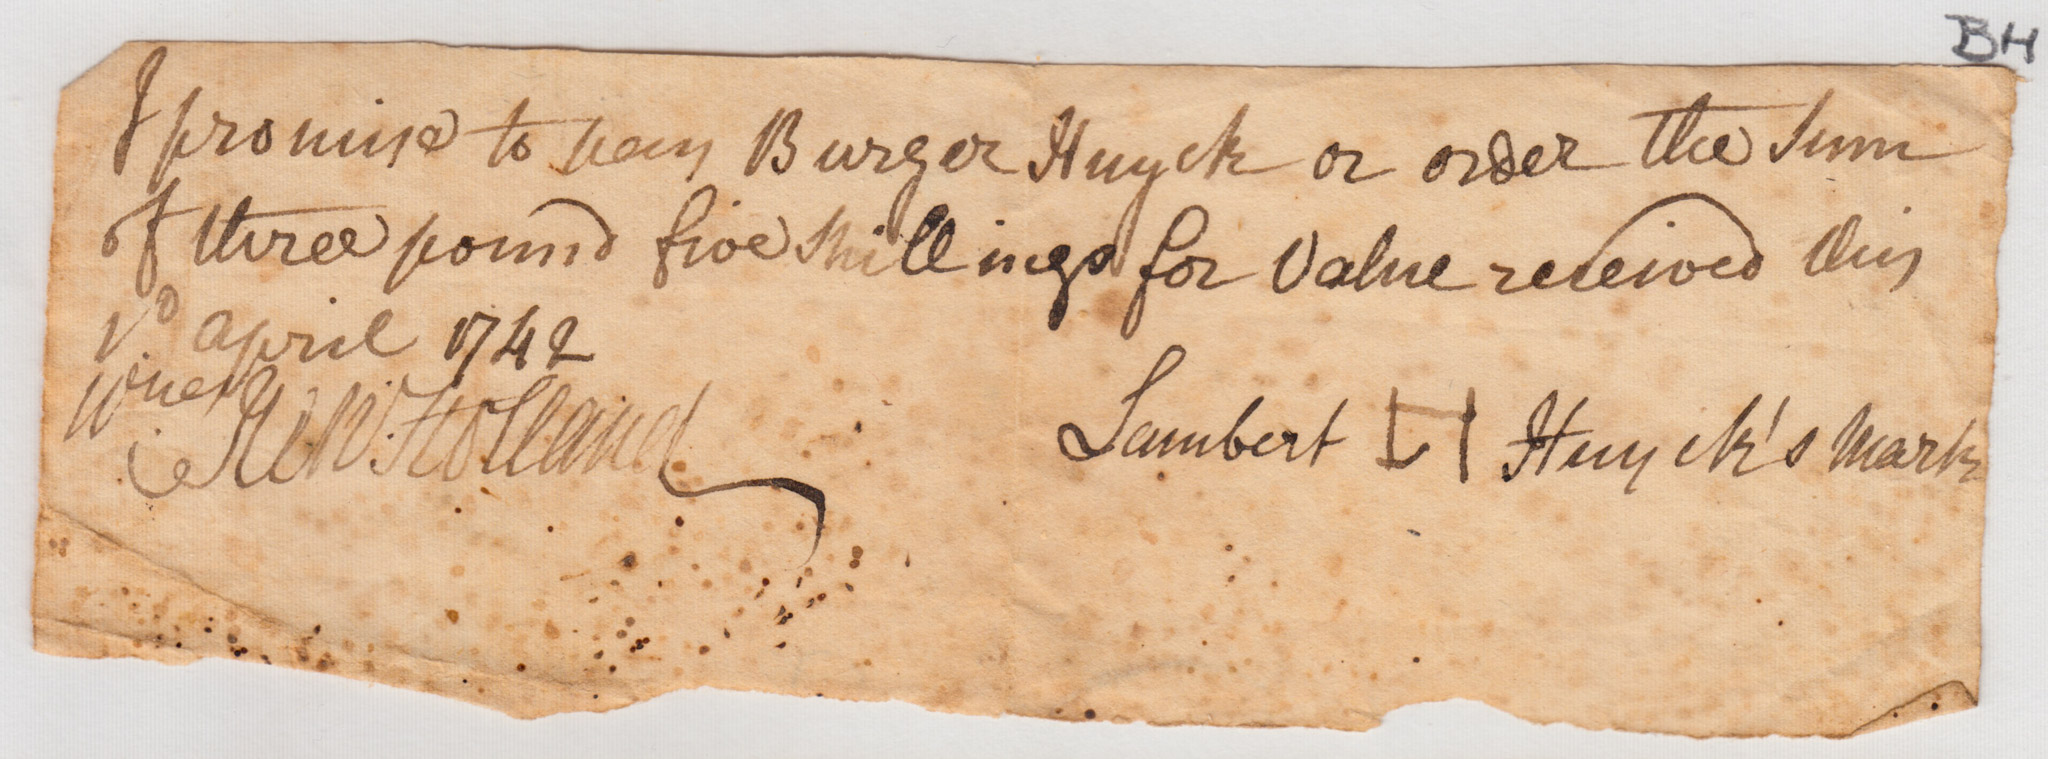 BH
I promise to pay Burger Huyck or order the Sum
of three pound five Shillings for Value received this
april 1742
Holland
Lambert H Huyck's Mark